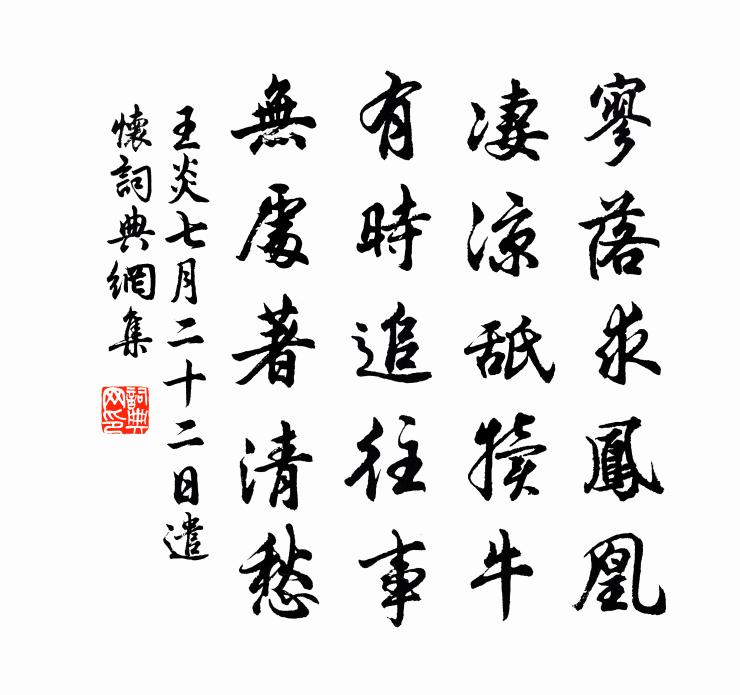 寥落求鳳凰
淒涼舐犢牛
有時追往事
無處著清愁
王炎七月二十二日遣
懷詞典網集
詞典
网印